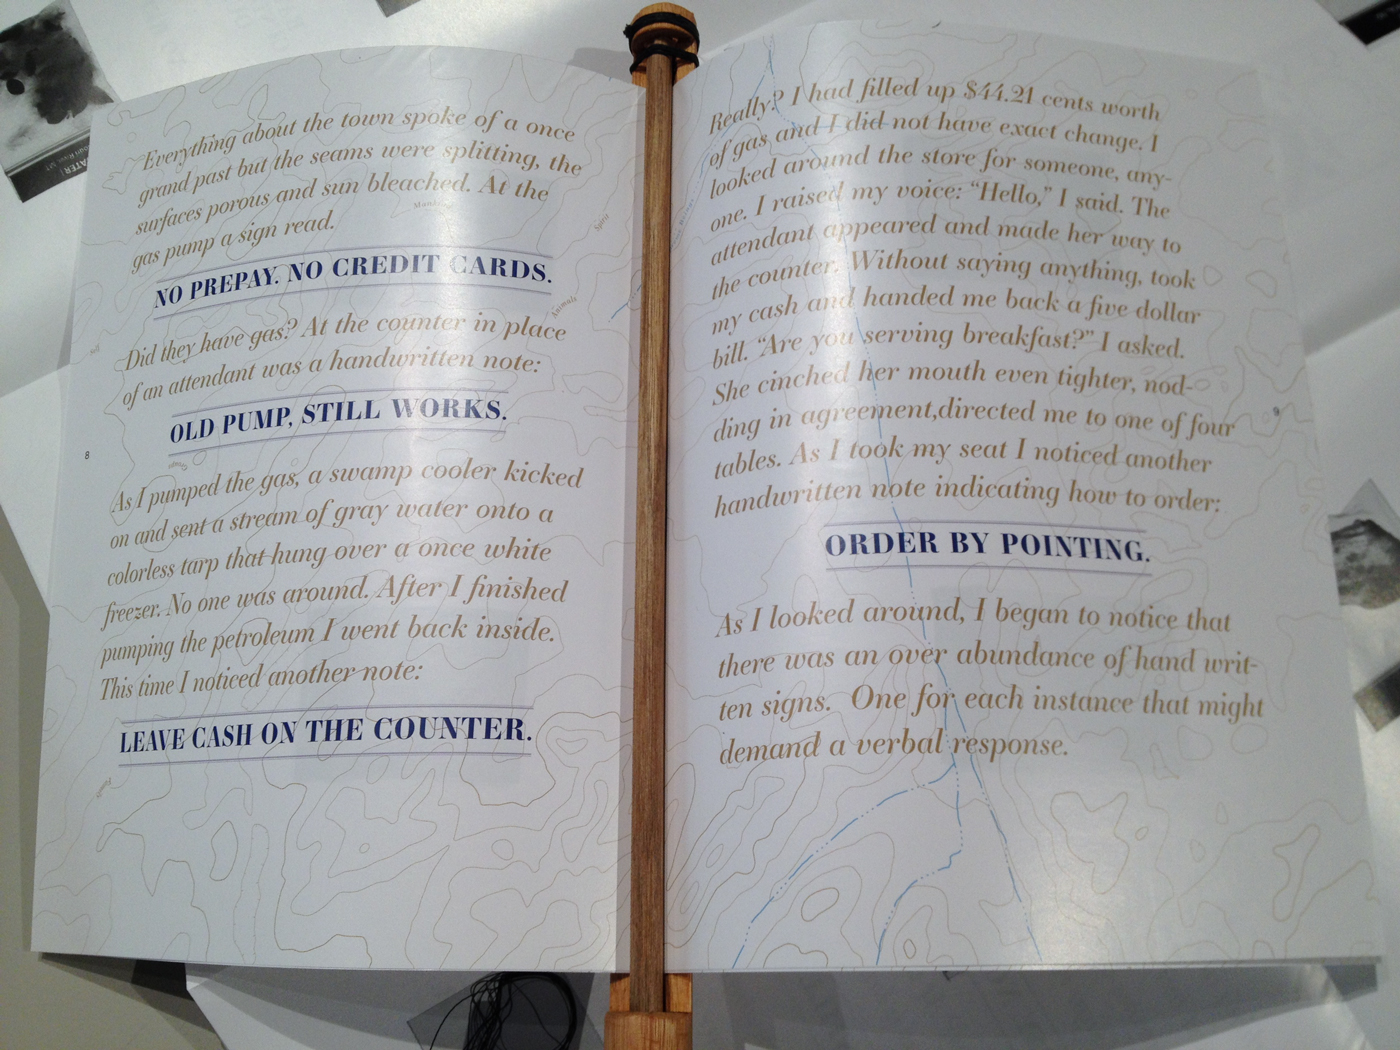 Everything about the town spoke of a once
grand past but the seams were splitting, the
surfaces porous and sun bleached. At the
gas pump a sign read.
NO PREPAY. NO CREDIT CARDS.
Did they have gas? At the counter in place
of an attendant was a handwritten note:
OLD PUMP, STILL WORKS.
As I pumped the gas, a swamp cooler kicked
on and sent a stream of gray water onto a
colorless tarp that hung over a once white
freezer. No one was around. After I finished
pumping the petroleum I went back inside.
This time I noticed another note:
LEAVE CASH ON THE COUNTER.
8
Animals
Spirit
Really? I had filled up $44.21 cents worth
of gas and I did not have exact change. I
looked around the store for someone, any-
one. I raised my voice: “Hello,” I said. The
attendant appeared and made her way to
the counter. Without saying anything, took
my cash and handed me back a five dollar
bill. “Are you serving breakfast?” I asked.
She cinched her mouth even tighter, nod-
ding in agreement,directed me to one of four
tables. As I took my seat I noticed another
handwritten note indicating how to order:
ORDER BY POINTING.
As I looked around, I began to notice that
there was an over abundance of hand writ-
ten signs. One for each instance that might
demand a verbal response.
9